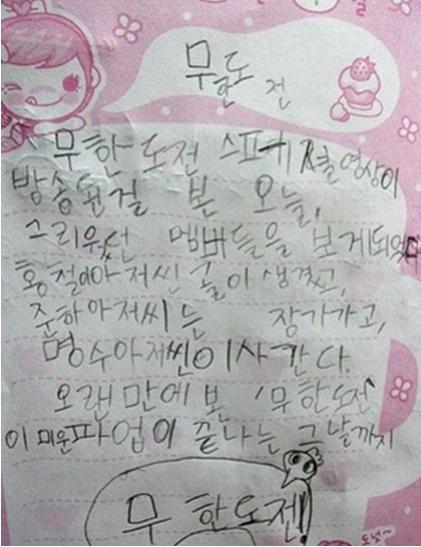 무한도전
무한도전 스페셜영상이
방송된걸 본 오늘,
그리웠던 멤버들을 보게되었다
홍철아저씬 집이 생겼고,
준하아저씨는 장가가고,
명수아저씬이사간다.
오랜만에본 '무한도전'
이 미운파업이 끝나는 그날까지
무한도전!
도넛~